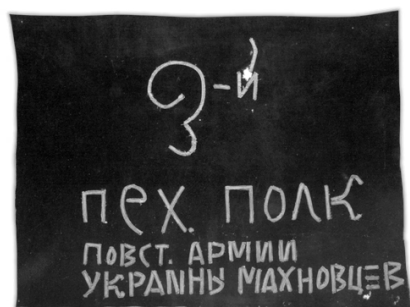 3-й
пех. полк
повст. армии
украины махновцев